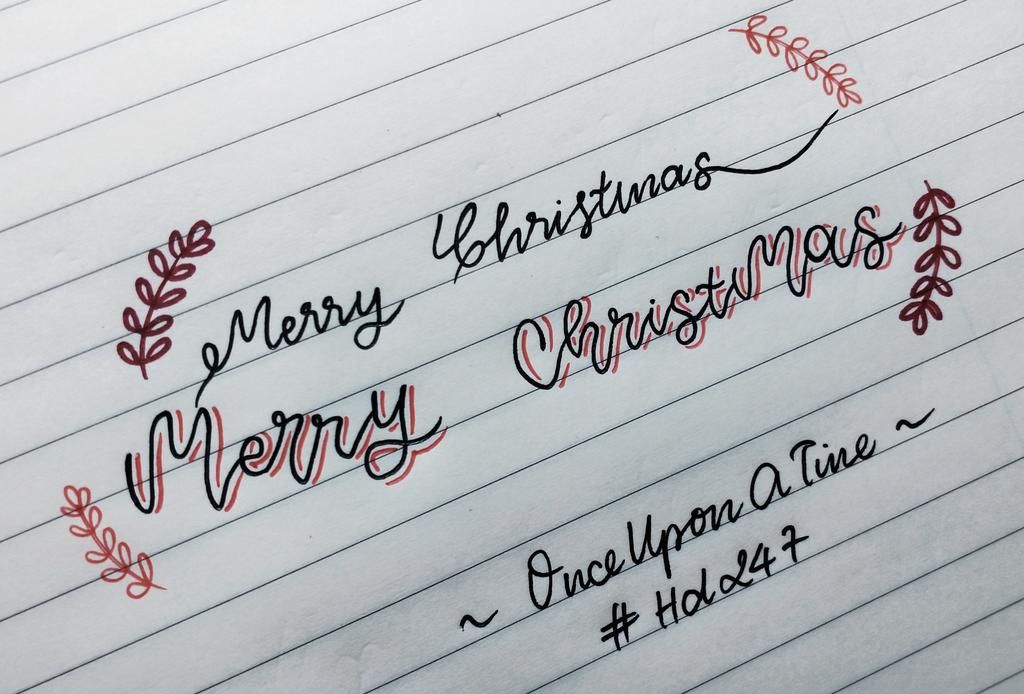 Merry Christmas
Merry Christmas
~ Once Upon A Time ~
# Hd247